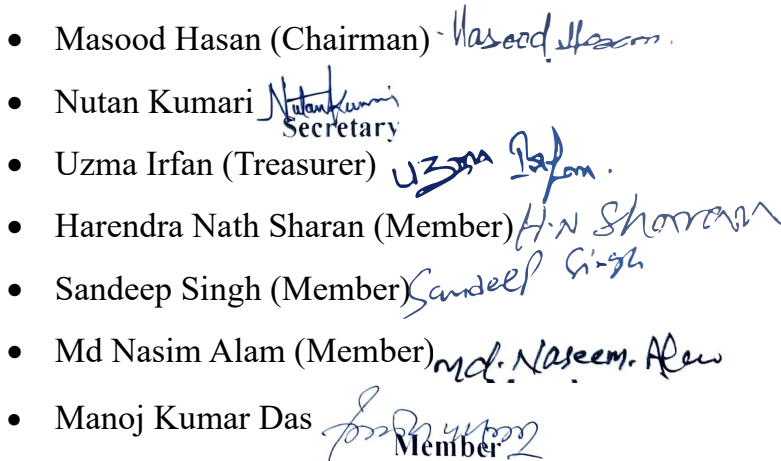 • Masood Hasan (Chairman) Masood Hasan.
• Nutan Kumari Nutan Kumari
Secretary
• Uzma Irfan (Treasurer) Uzma Irfan.
• Harendra Nath Sharan (Member) H.N Sharan
• Sandeep Singh (Member) Sandeep Singh
• Md Nasim Alam (Member) Md. Naseem. Alam
• Manoj Kumar Das
Member